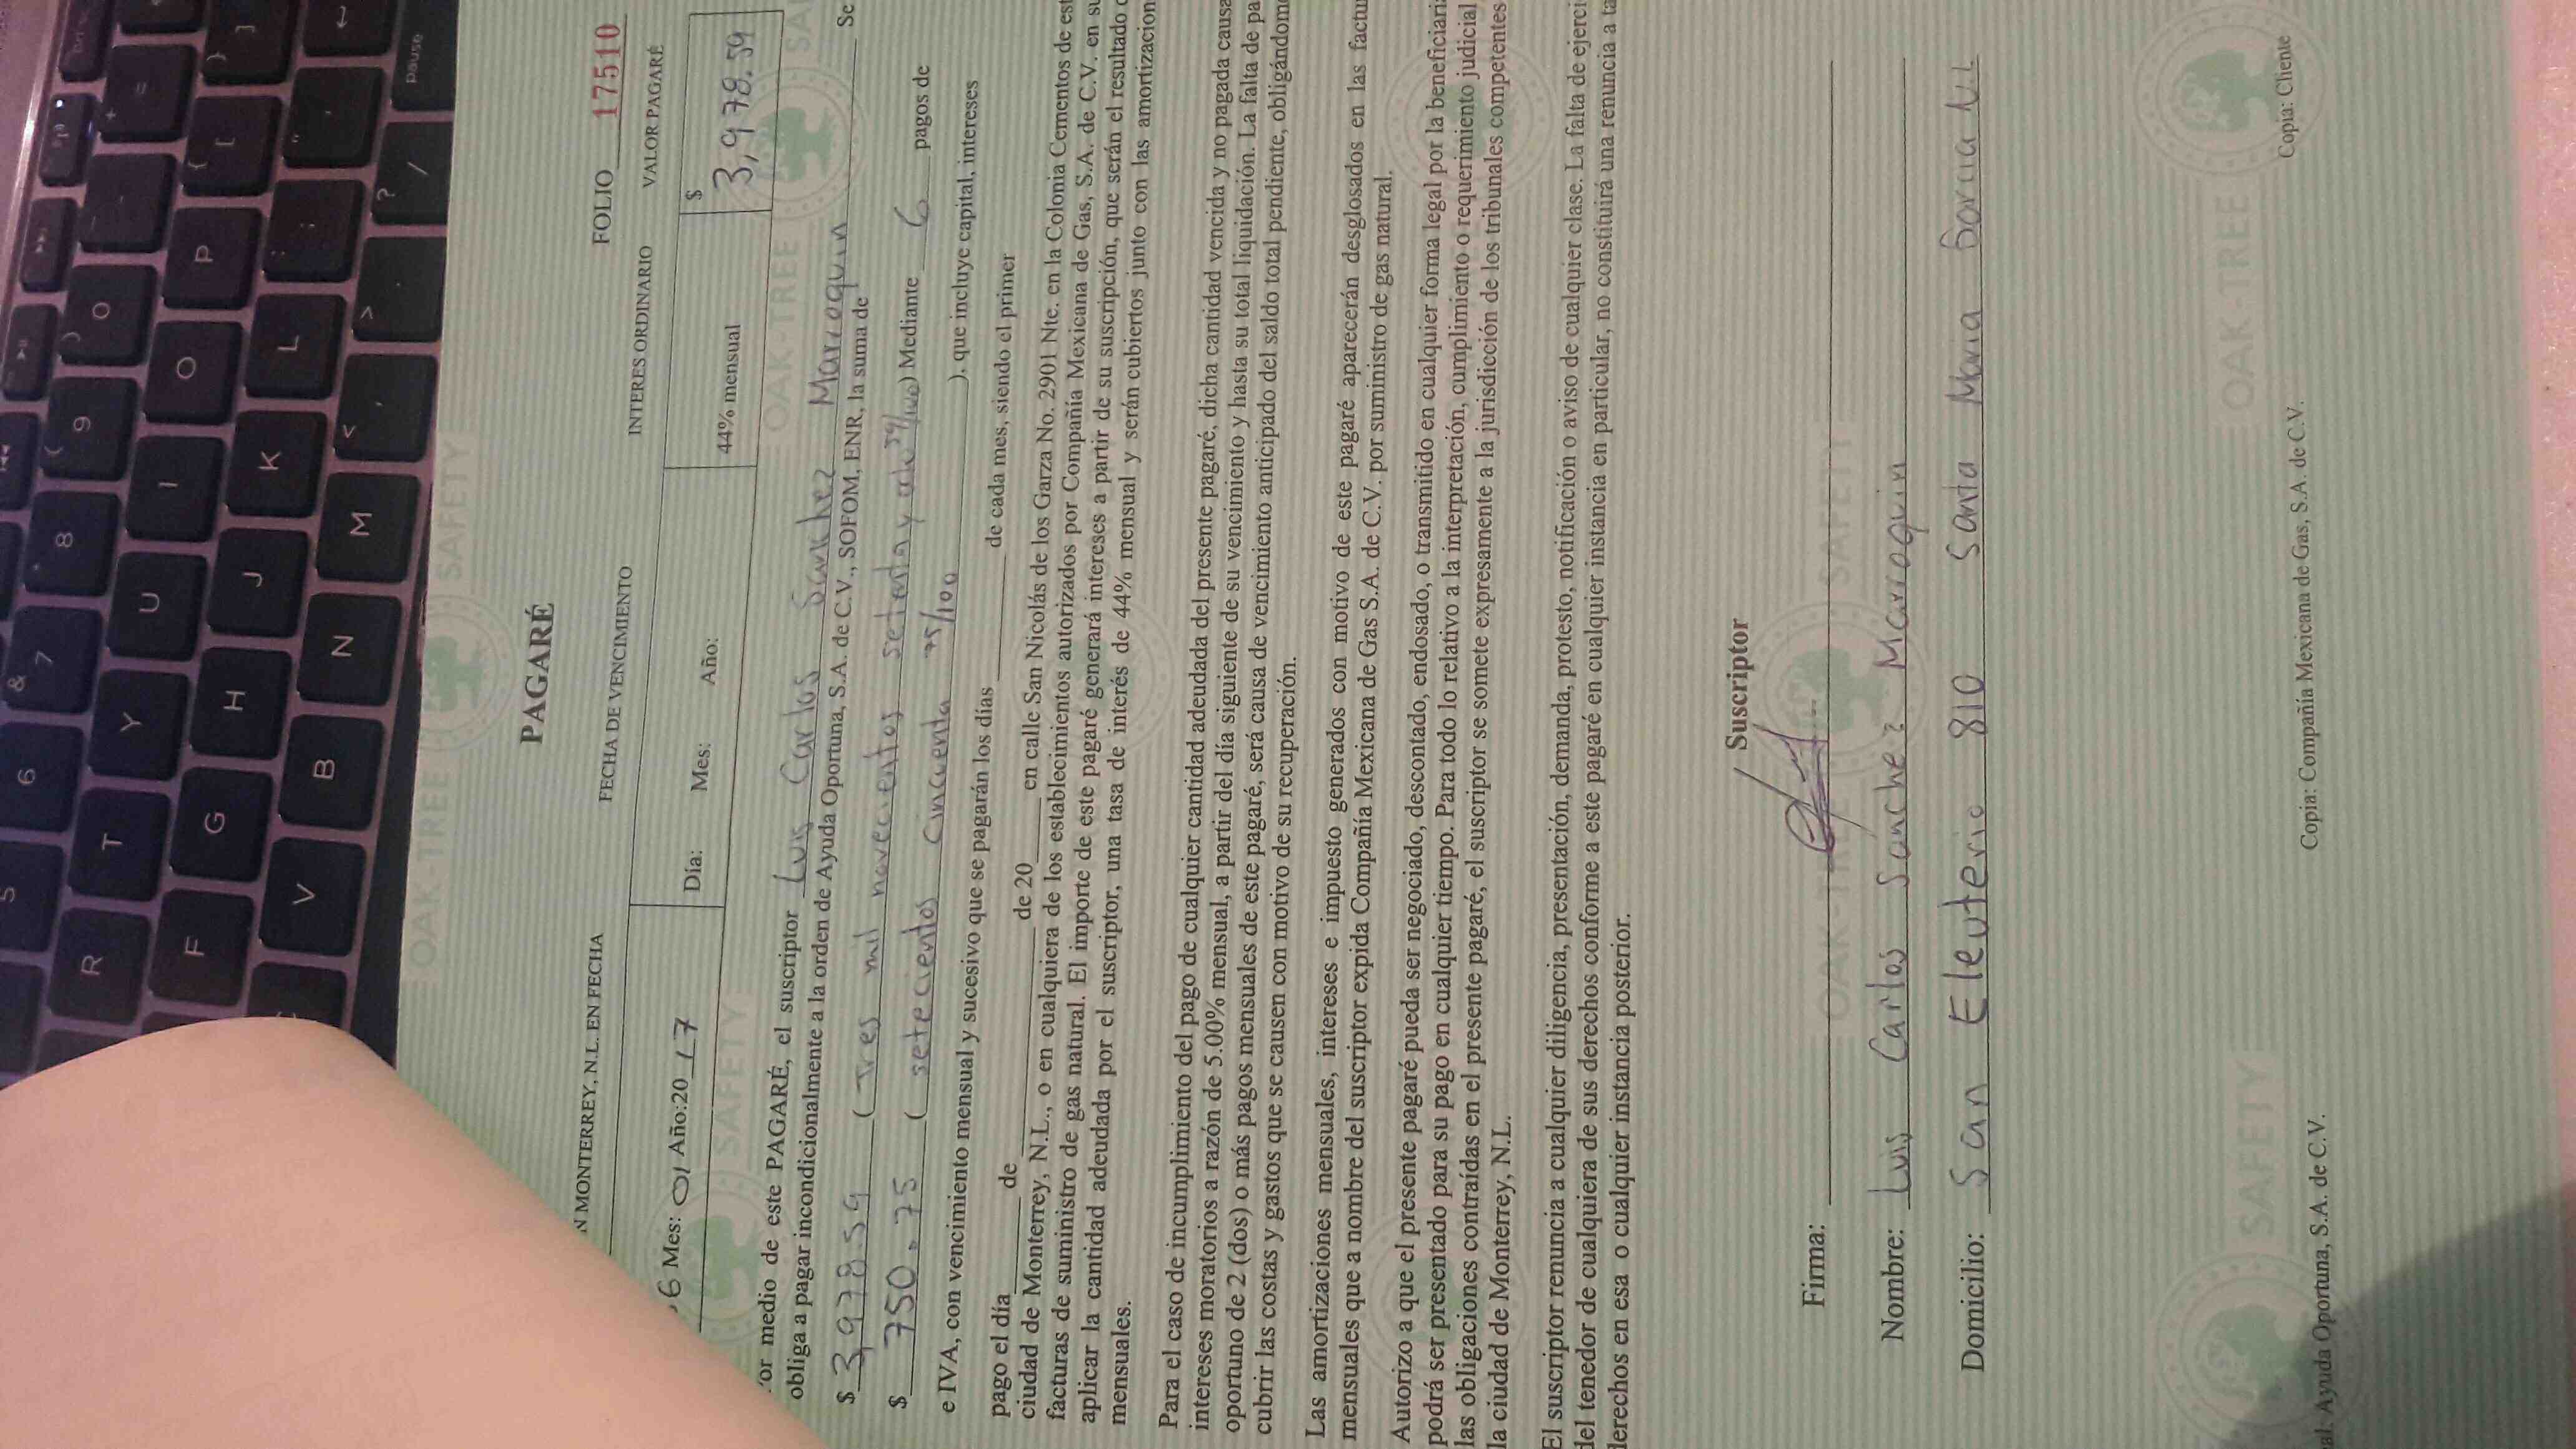 PAGARÉ
FOLIO 17510
N MONTERREY, N.L. EN FECHA FECHA DE VENCIMIENTO INTERES ORDINARIO VALOR PAGARÉ
6 Mes: 01 Año:2017 Día: Mes: Año: 44% mensual $ 3,978.59
or medio de este PAGARÉ, el suscriptor Luis Carlos Sanchez Marroquin Se
obliga a pagar incondicionalmente a la orden de Ayuda Oportuna, S.A. de C.V., SOFOM, ENR, la suma de
$ 3,978.59 (Tres mil novecientos setenta y ocho 59/100) Mediante 6 pagos de
$ 750.75 (setecientos cincuenta 75/100), que incluye capital, intereses
e IVA, con vencimiento mensual y sucesivo que se pagarán los días de cada mes, siendo el primer
pago el día de de 20 en calle San Nicolás de los Garza No. 2901 Nte. en la Colonia Cementos de est
ciudad de Monterrey, N.L., o en cualquiera de los establecimientos autorizados por Compañía Mexicana de Gas, S.A. de C.V. en su
facturas de suministro de gas natural. El importe de este pagaré generará intereses a partir de su suscripción, que serán el resultado d
aplicar la cantidad adeudada por el suscriptor, una tasa de interés de 44% mensual y serán cubiertos junto con las amortizacion
mensuales.
Para el caso de incumplimiento del pago de cualquier cantidad adeudada del presente pagaré, dicha cantidad vencida y no pagada causa
intereses moratorios a razón de 5.00% mensual, a partir del día siguiente de su vencimiento y hasta su total liquidación. La falta de pa
oportuno de 2 (dos) o más pagos mensuales de este pagaré, será causa de vencimiento anticipado del saldo total pendiente, obligándome
cubrir las costas y gastos que se causen con motivo de su recuperación.
Las amortizaciones mensuales, intereses e impuesto generados con motivo de este pagaré aparecerán desglosados en las factur
mensuales que a nombre del suscriptor expida Compañía Mexicana de Gas S.A. de C.V. por suministro de gas natural.
Autorizo a que el presente pagaré pueda ser negociado, descontado, endosado, o transmitido en cualquier forma legal por la beneficiaria
podrá ser presentado para su pago en cualquier tiempo. Para todo lo relativo a la interpretación, cumplimiento o requerimiento judicial
las obligaciones contraídas en el presente pagaré, el suscriptor se somete expresamente a la jurisdicción de los tribunales competentes
la ciudad de Monterrey, N.L.
El suscriptor renuncia a cualquier diligencia, presentación, demanda, protesto, notificación o aviso de cualquier clase. La falta de ejerci
del tenedor de cualquiera de sus derechos conforme a este pagaré en cualquier instancia en particular, no constituirá una renuncia a ta
derechos en esa o cualquier instancia posterior.
Suscriptor
Firma:
Nombre: Luis Carlos Sanchez Marroquin
Domicilio: San Eleuterio 810 Santa Maria Garcia N.L
al: Ayuda Oportuna, S.A. de C.V. Copia: Compañía Mexicana de Gas, S.A. de C.V. Copia: Cliente
OAK-TREE SAFETY